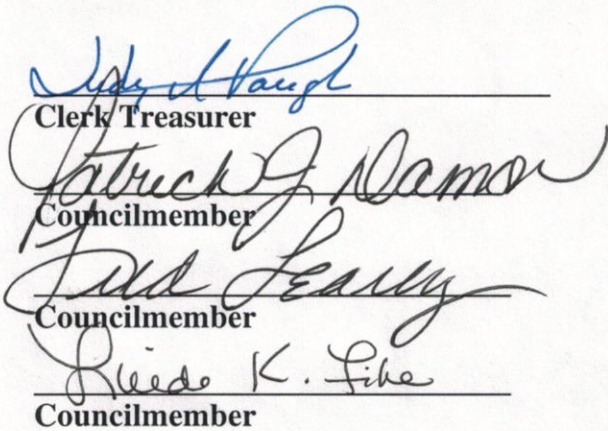 Judy A Paugh
Clerk Treasurer
Patrick J Damon
Councilmember
Councilmember
K. Fike
Councilmember